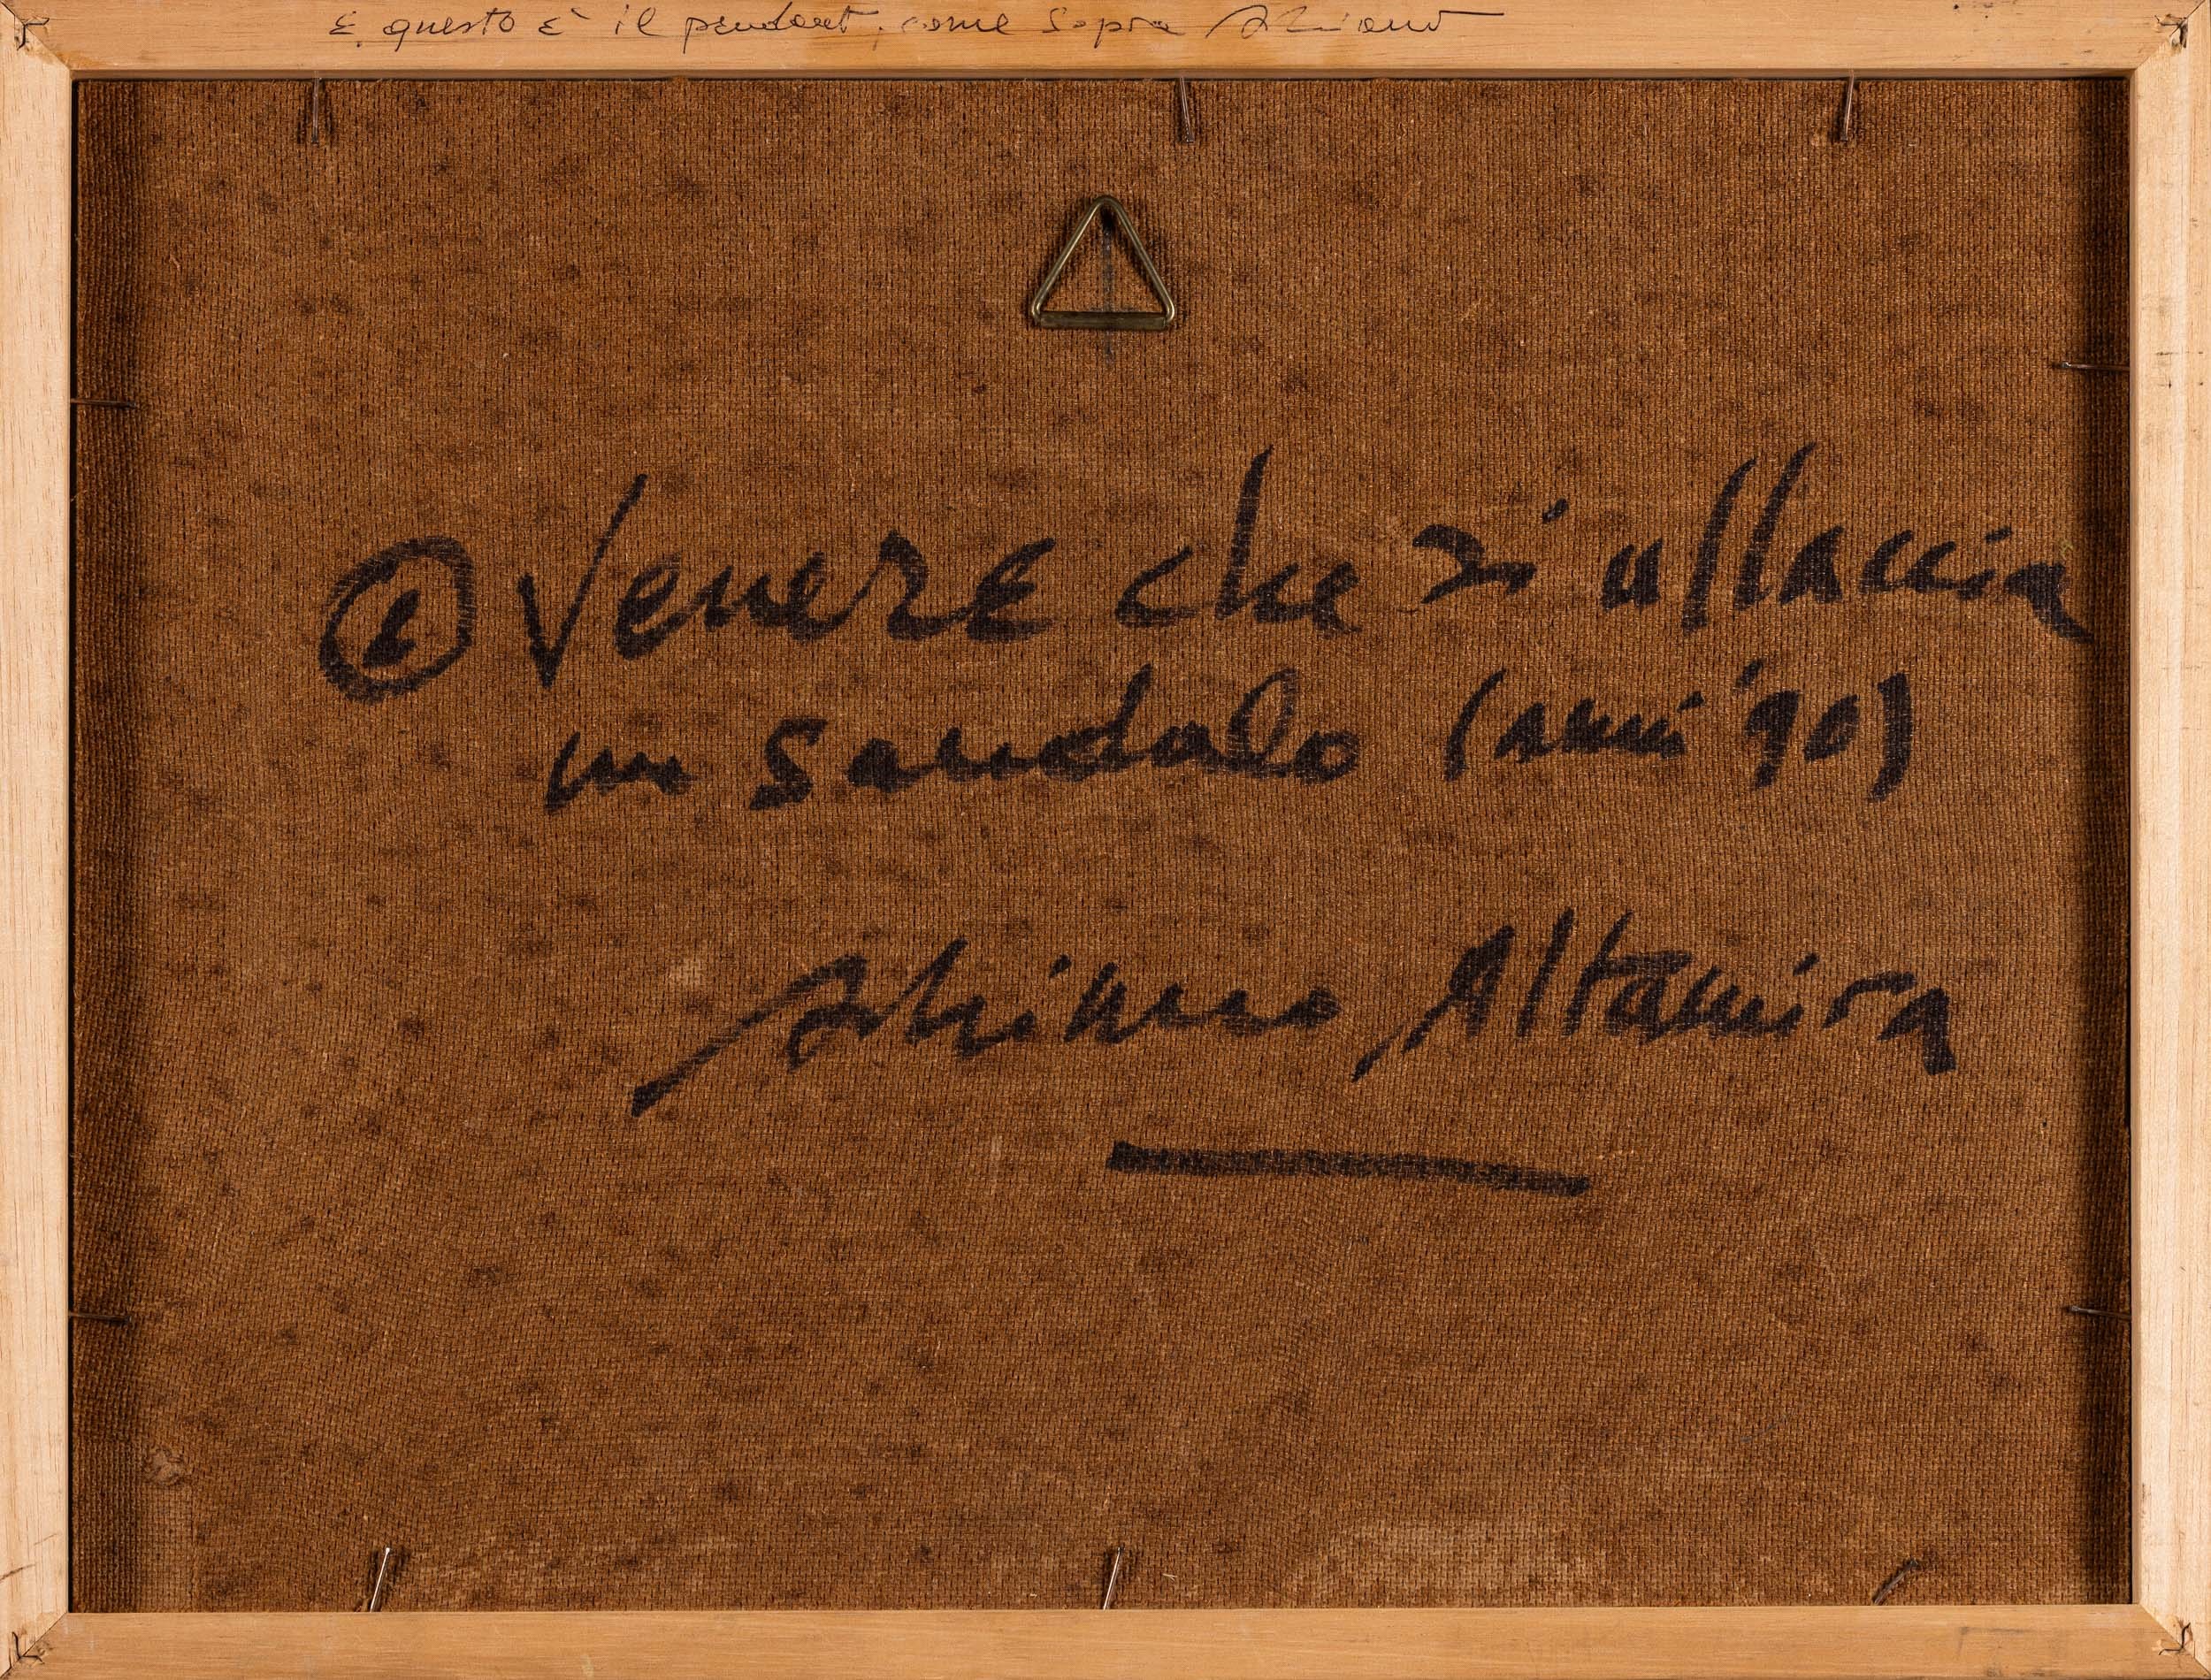 E questo è il pendant, come sopra Adriano
Venere che si allaccia
un sandalo (anni '90)
Adriano Altamira